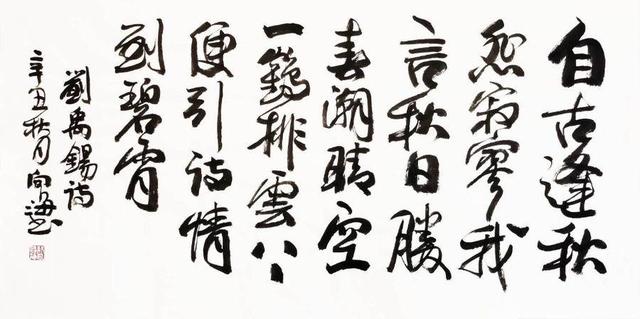 自古逢秋
怨寂寥我
言秋日勝
春潮晴空
一鶴排雲上
便引詩情
到碧霄
劉禹錫詩
辛丑秋月向海